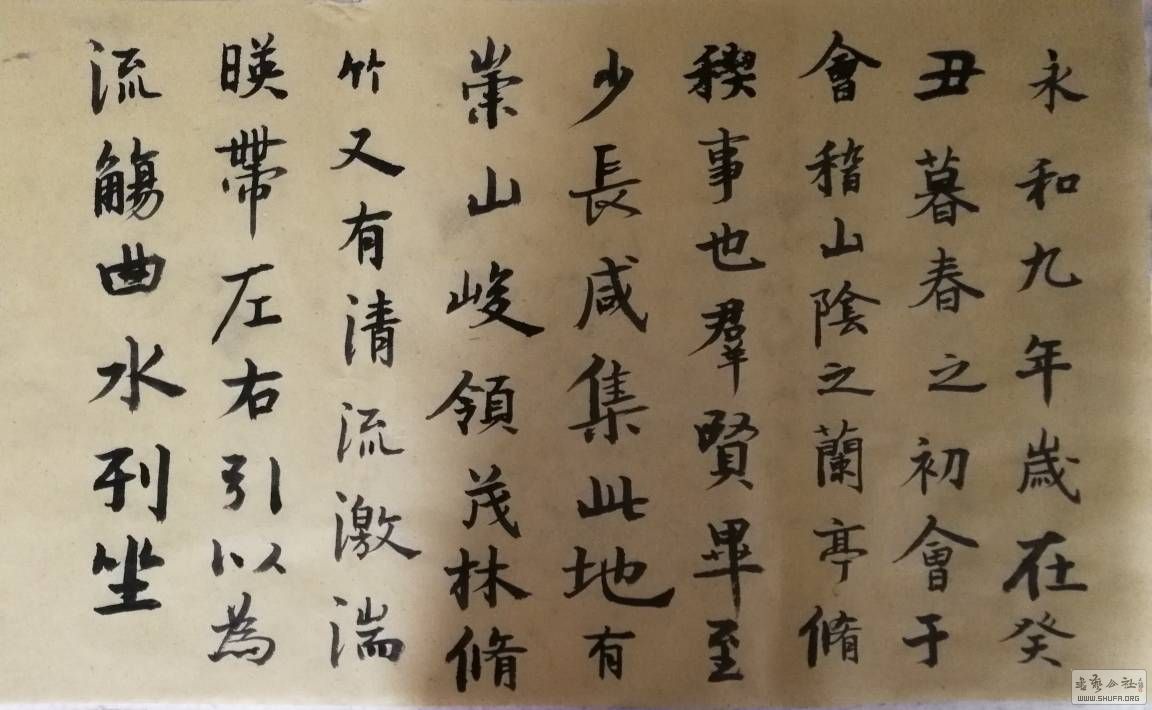 永和九年歲在癸
丑暮春之初會于
會稽山陰之蘭亭脩
稧事也羣賢畢至
少長咸集此地有
崇山峻領茂林脩
竹又有清流激湍
暎帶左右引以為
流觴曲水列坐
WWW.SHUFA.ORG